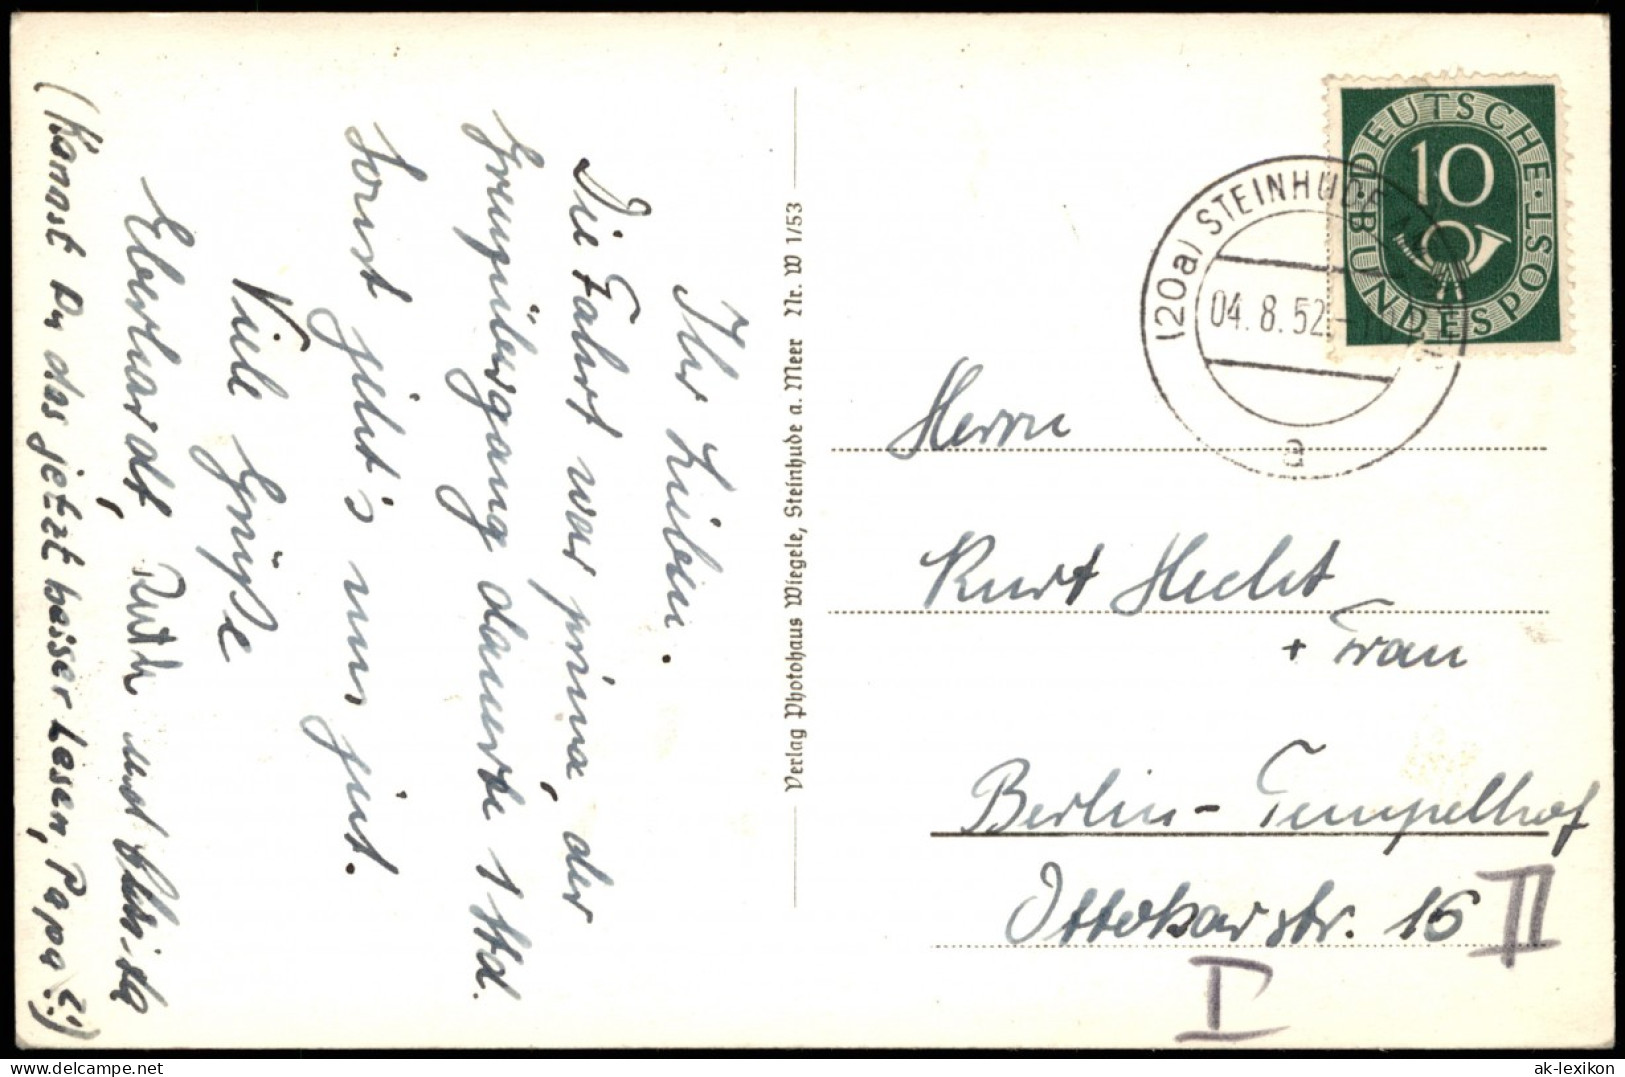 Ihr Lieben.
Die Fahrt war prima, der
Grenzübergang dauerte 1 Std.
Sonst geht's uns gut.
Viele Grüße
Eberhardt, Ruth und
(Kannst Du das jetzt besser Lesen, Papa?!)
Verlag Photohaus Wiegele, Steinhude a. Meer Nr. W 1/53
DEUTSCHE · BUNDESPOST ·
10
(20a) STEINHUDE
04.8.52
a
Herrn
Kurt Hecht
+ Frau
Berlin-Tempelhof
Ottokarstr. 16 II
I
delcampe.net
ak-lexikon